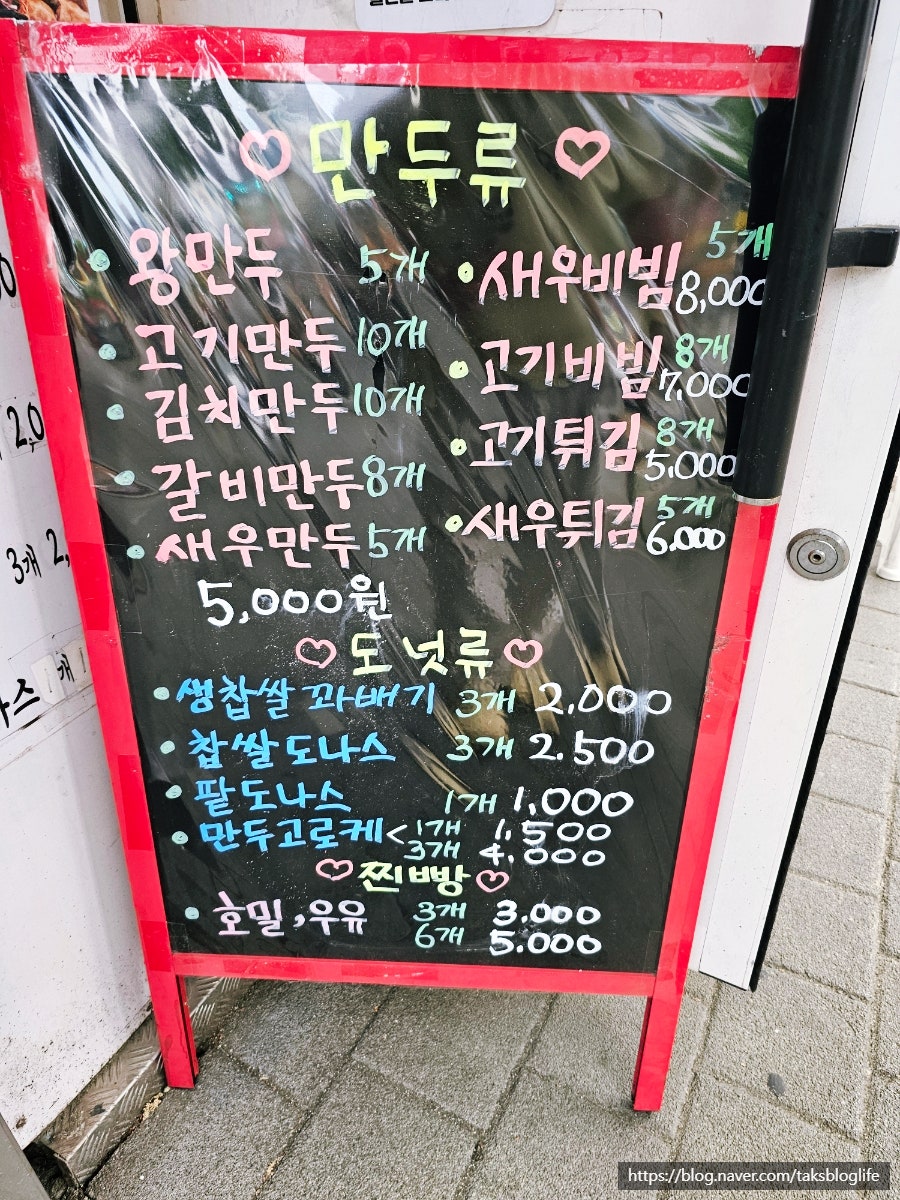 만두류
왕만두 5개
고기만두 10개
김치만두 10개
갈비만두 8개
새우만두 5개
5,000원
새우비빔 5개 8,000
고기비빔 8개 7,000
고기튀김 8개 5,000
새우튀김 5개 6,000
도넛류
생찹쌀 꽈배기 3개 2,000
찹쌀도나스 3개 2.500
팥도나스 1개 1,000
만두고로케 < 1개 1.500
3개 4.000
찐빵
호밀, 우유 3개 3.000
6개 5.000
2,0
3개 2,
스 1개 1
https://blog.naver.com/taksbloglife